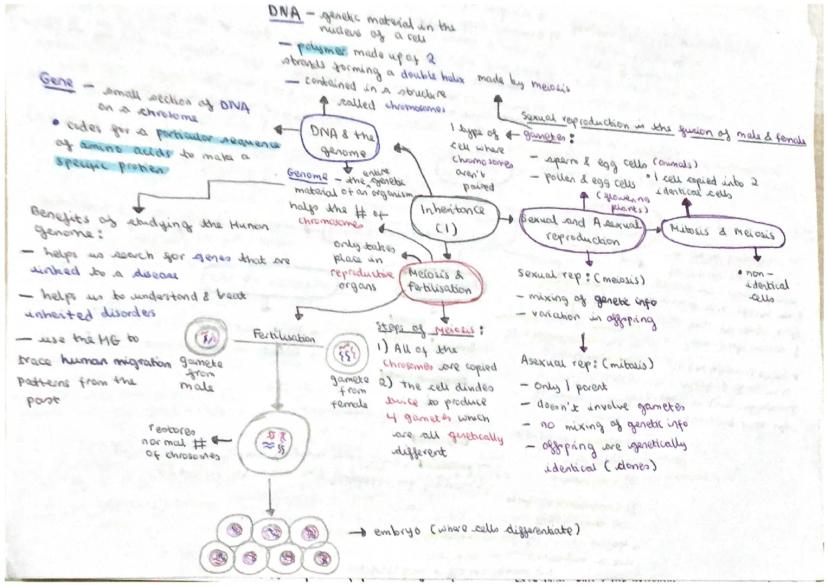 DNA – genetic material in the
nucleus of a cell
– polymer made up of 2
strands forming a double helix
– contained in a structure
called chromosomes
made by meiosis
Gene – small section of DNA
on a chrosome
• codes for a particular sequence
of amino acids to make a
specific protien
DNA & the
genome
Genome – the entire genetic
material of an organism
Benefits of studying the Human
genome:
– helps us search for genes that are
linked to a disease
– helps us to understand & treat
inherited disorders
– use the HG to
trace human migration
patterns from the
past
Inheritance
(1)
Sexual reproduction is the fusion of male & female
gametes:
1 type of
cell where
chromosomes
aren't
paired
– sperm & egg cells (animals)
– pollen & egg cells
(flowering
plants)
• 1 cell copied into 2
identical cells
Sexual and Asexual
reproduction
Mitosis & Meiosis
• non-
identical
cells
sexual rep: (meiosis)
– mixing of genetic info
– variation in offspring
Asexual rep: (mitosis)
– only 1 parent
– doesn't involve gametes
– no mixing of genetic info
– offspring are genetically
identical (clones)
halfs the # of
chromosomes
only takes
place in
reproductive
organs
Meiosis &
fertilisation
Steps of meiosis:
1) All of the
chrosomes are copied
2) The cell divides
twice to produce
4 gametes which
are all genetically
different
Fertilisation
gamete
from
male
gamete
from
female
restores
normal #
of chrosomes
embryo (where cells differentiate)